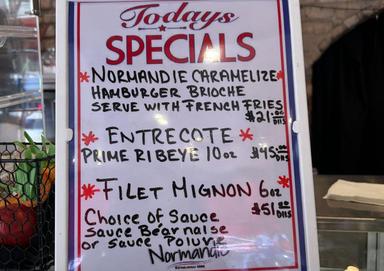 Todays
SPECIALS
NORMANDIE CARAMELIZE
HAMBURGER BRIOCHE
SERVE WITH FRENCH FRIES
$21.00
ENTRECOTE
PRIME RIBEYE 10oz $45.00
FILET MIGNON 6oz
$51.00
Choice of Sauce
Sauce Béarnaise
or Sauce Poivre
Normandie